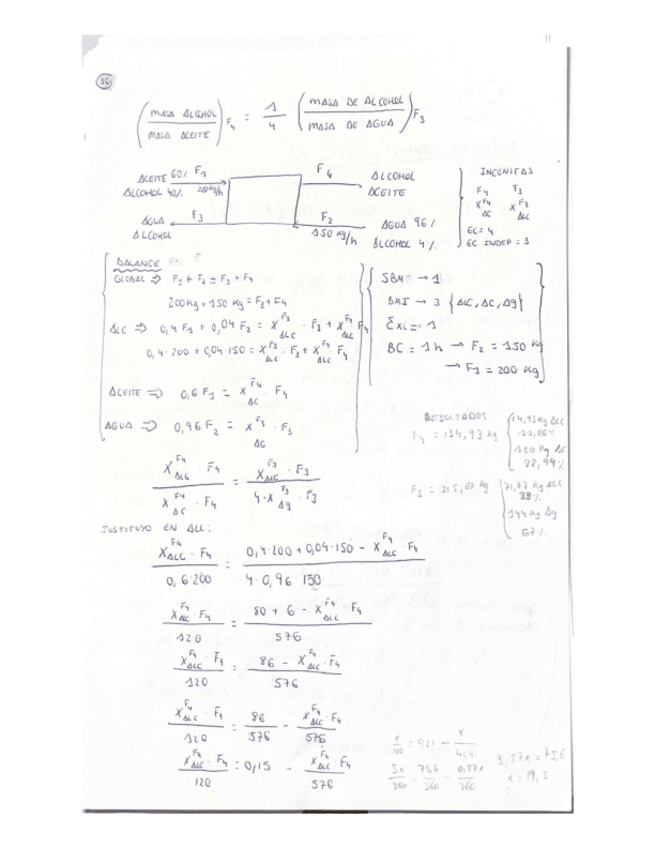 36
(MASA ALCOHOL / MASA ACEITE)F4 = 1/4 (MASA DE ALCOHOL / MASA DE AGUA)F3
ACEITE 60% F1
ALCOHOL 40% 200kg/h
F4 ALCOHOL
ACEITE
AGUA F3
ALCOHOL
F2 AGUA 96%
150 kg/h ALCOHOL 4%
INCÓGNITAS
F4 F3
X^F4_AC X^F3_ALC
EC = 4
EC. INDEP = 3
BALANCE
GLOBAL ⇒ F1 + F2 = F3 + F4
200kg + 150 kg = F3 + F4
ALC ⇒ 0,4 F1 + 0,04 F2 = X^F3_ALC · F3 + X^F4_ALC · F4
0,4 · 200 + 0,04 · 150 = X^F3_ALC · F3 + X^F4_ALC · F4
ACEITE ⇒ 0,6 F1 = X^F4_AC · F4
AGUA ⇒ 0,96 F2 = X^F3_AG · F3
→ 1
BMI → 3 {ALC, AC, Ag}
Σxi = 1
BC = 1h → F2 = 150 kg
→ F1 = 200 kg
RESULTADOS
F4 = 134,93 kg
14,93 kg ALC
11,06%
120 kg AC
88,94%
F3 = 215,07 kg
71,07 kg ALC
33%
144 kg Ag
67%
X^F4_ALC · F4 / X^F4_AC · F4 = X^F3_ALC · F3 / 4 · X^F3_Ag · F3
SUSTITUYO EN ALC:
X^F4_ALC · F4 / 0,6·200 = 0,4·200 + 0,04·150 − X^F4_ALC · F4 / 4·0,96·150
X^F4_ALC · F4 / 120 = 80 + 6 − X^F4_ALC · F4 / 576
X^F4_ALC · F4 / 120 = 86 − X^F4_ALC · F4 / 576
X^F4_ALC · F4 / 120 = 86/576 − X^F4_ALC · F4 / 576
X^F4_ALC · F4 / 120 = 0,15 − X^F4_ALC · F4 / 576
3x/360 = 75,6/360 − 0,87x/360
3,87x = 75,6
x = 19,5